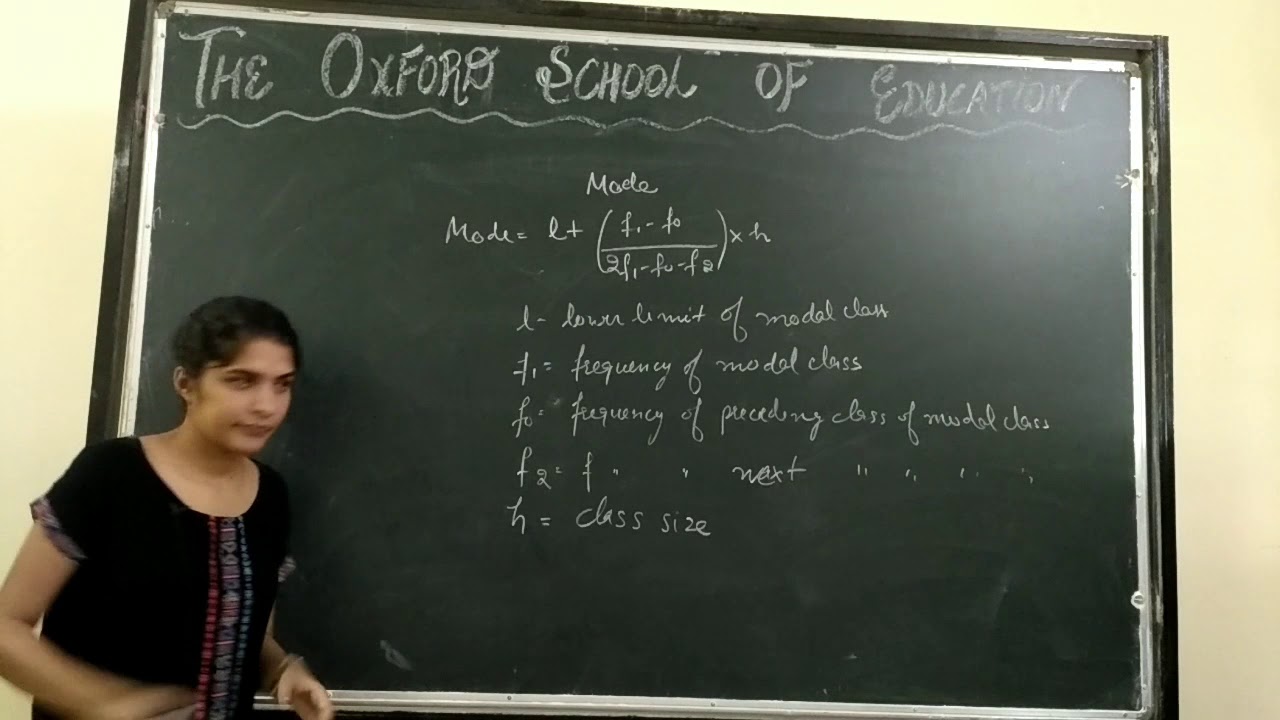 THE OXFORD SCHOOL OF EDUCATION
Mode
Mode = l + (f₁ - f₀ / 2f₁ - f₀ - f₂) × h
l - lower limit of modal class
f₁ = frequency of modal class
f₀ = frequency of preceding class of modal class
f₂ = f " " next " " " "
h = class size